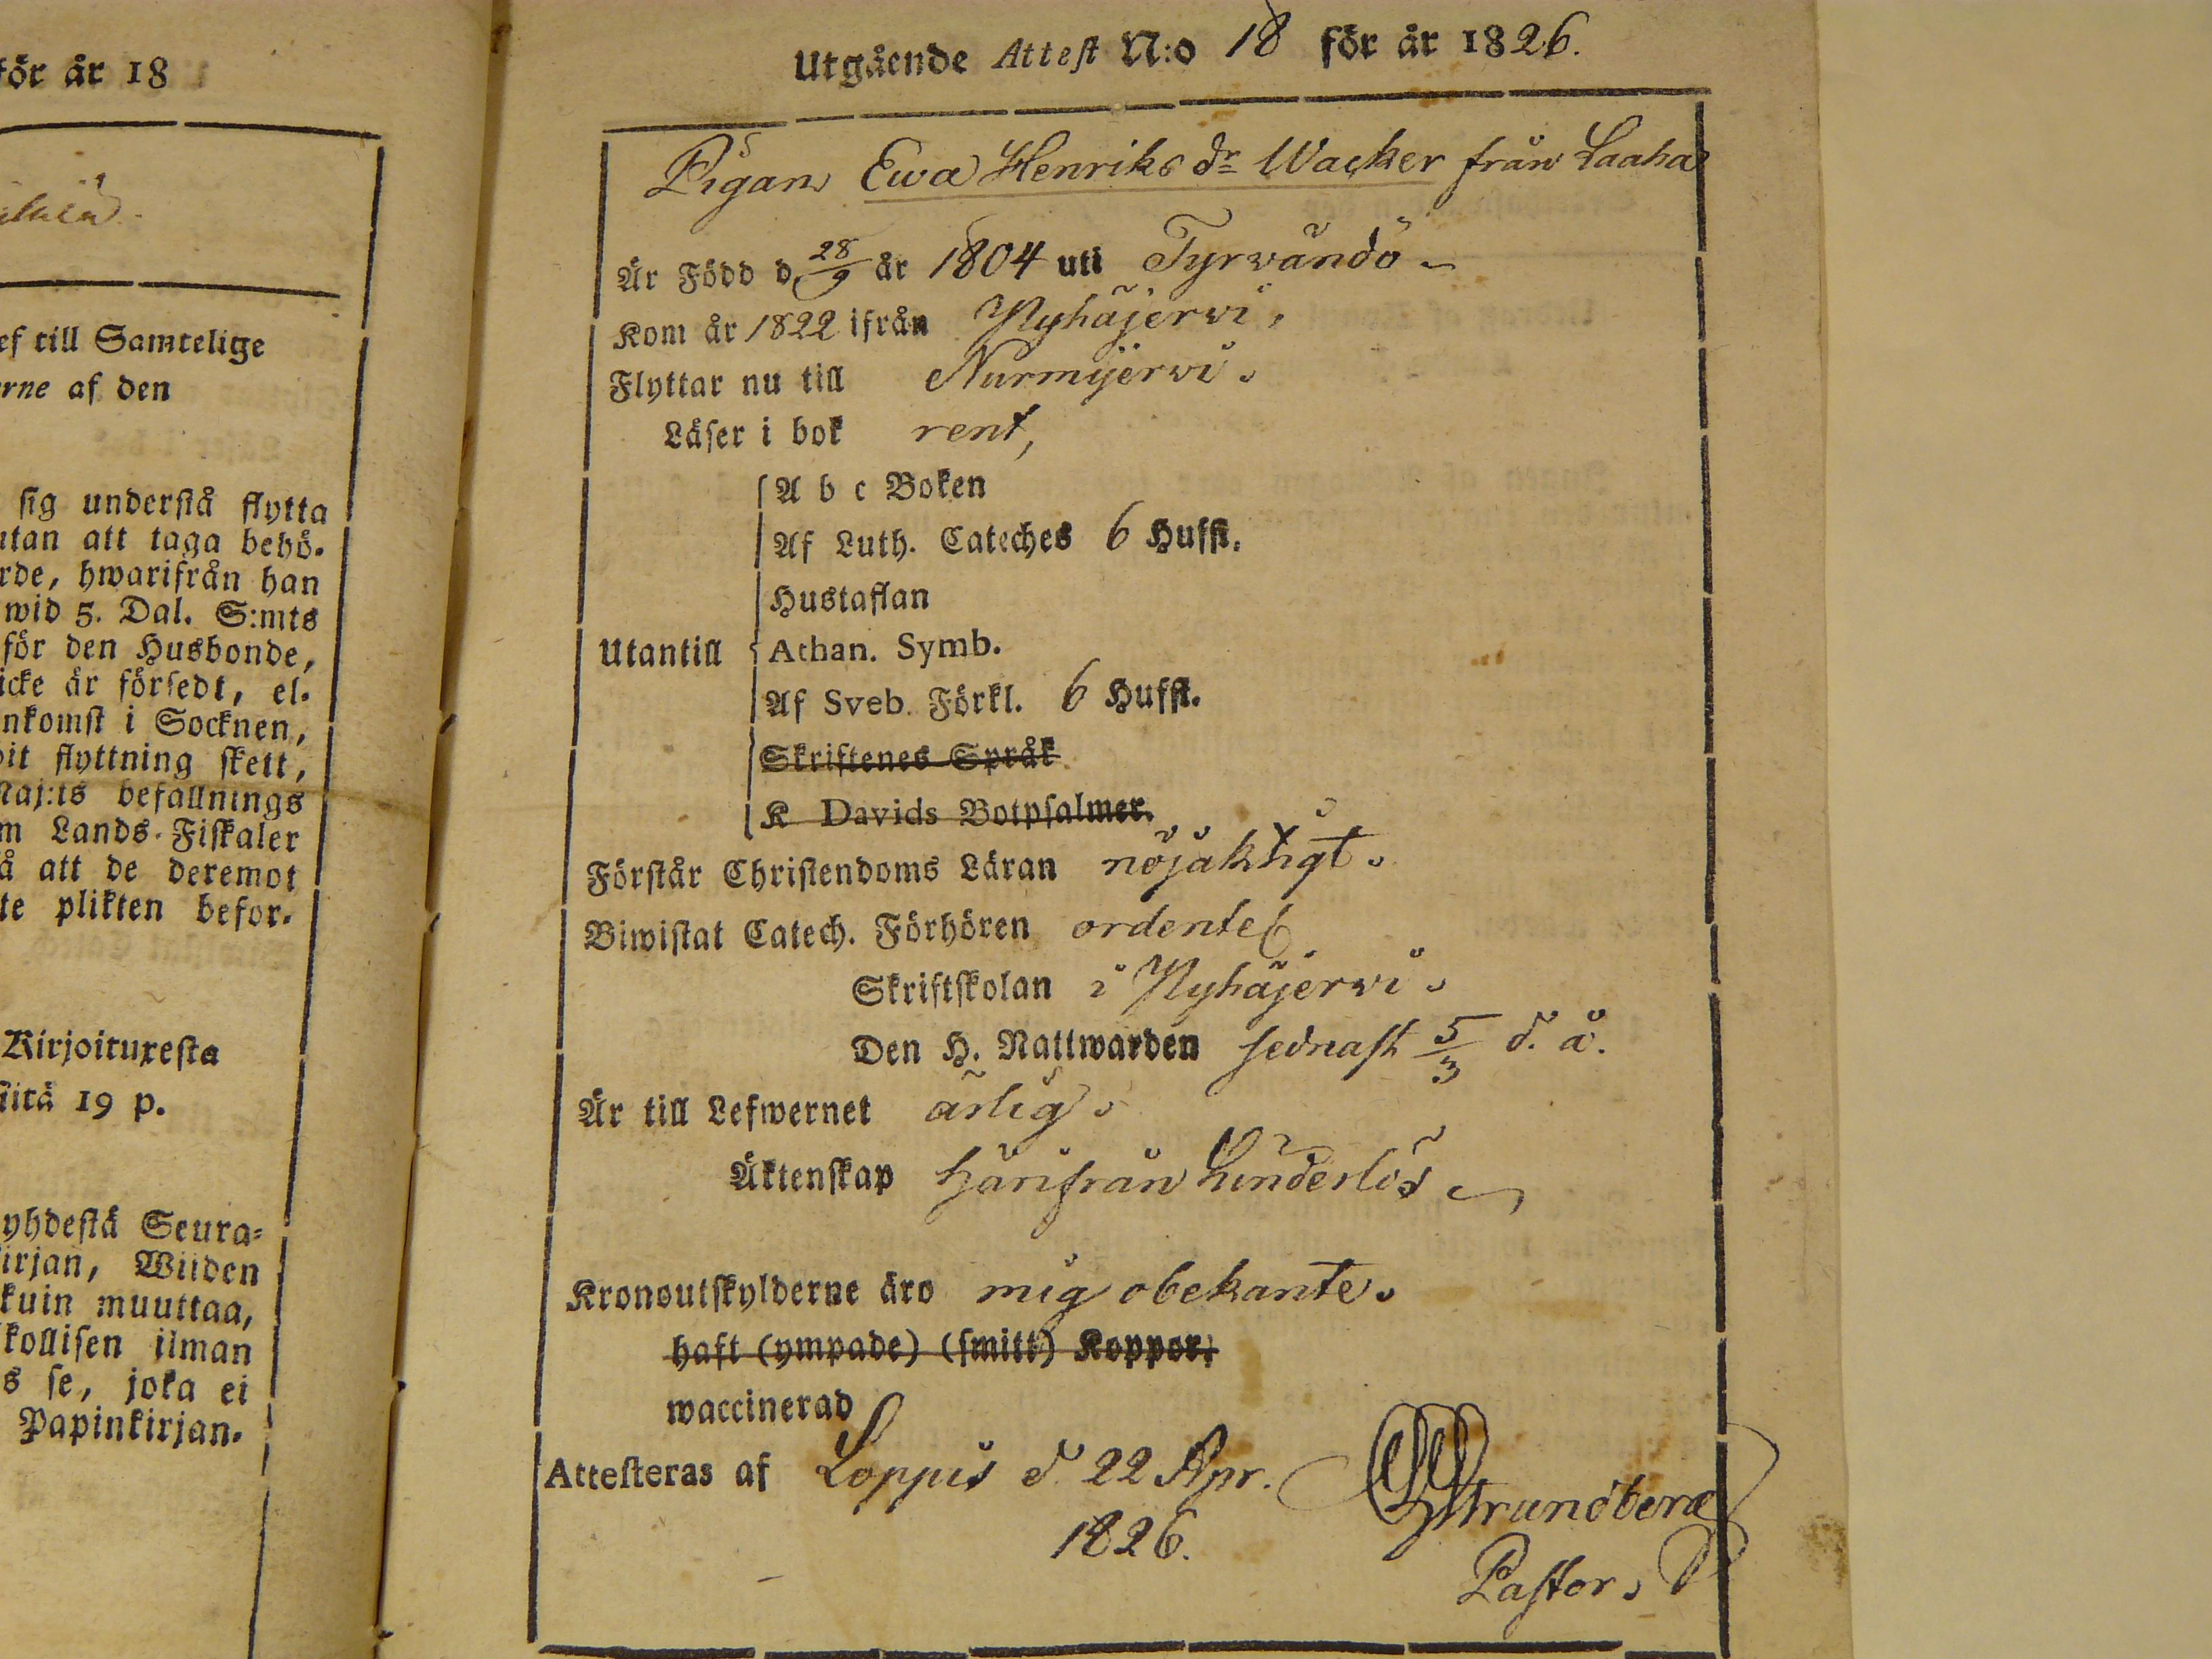 för år 18
ef till Samtelige
rne af den
sig understå flytta
utan att taga behö-
rde, hwarifrån han
wid 5. Dal. S:mts
för den Husbonde,
icke är försedt, el-
nkomst i Socknen,
it flyttning skett,
Maj:ts befallnings
m Lands-Fiskaler
å att de deremot
te plikten befor-
Kirjoituxesta
iitä 19 p.
yhdestä Seura-
irjan, Wiiden
kuin muuttaa,
kollisen ilman
s se, joka ei
Papinkirjan.
Utgående Attest N:o 18 för år 1826.
Pigan Ewa Henriks dr Wacker från Laaha
Är Född d. 28/9 år 1804 uti Tyrvändö
Kom år 1822 ifrån Nyhäjerwi,
Flyttar nu till Nurmijerwi.
Läser i bok rent,
A b c Boken
Af Luth. Cateches 6 Hufst.
Hustaflan
Utantill Athan. Symb.
Af Sveb. Förkl. 6 Hufst.
Skriftenes Språk
K Davids Botpsalmer.
Förstår Christendoms Läran nöjaktigt.
Biwistat Catech. Förhören ordentel.
Skriftskolan i Nyhäjerwi.
Den H. Nattwarden sednast 5/3 d. å.
Är till Lefwernet ärlig.
Äktenskap härifrån hinderlös
Kronoutskylderne äro mig obekante.
haft (ympade) (smitt) Koppor.
waccinerad
Attesteras af Loppis d. 22 Apr.
1826.
Strandberg
Pastor.